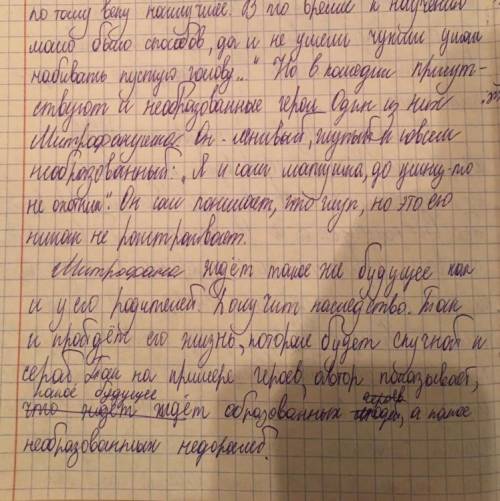 по тому веку наилучшее. В то время к научению
мало было способов, да и не умели чужим умом
набивать пустую голову..." Но в комедии присут-
ствуют и необразованные герои. Один из них
Митрофанушка. Он - ленивый, глупый и совсем
необразованный: "Я и сам матушка, до умниц-то
не охотник". Он сам понимает, что глуп, но это его
никак не расстраивает.
Митрофана ждёт такое же будущее как
и у его родителей. Получит наследство. Так
и пройдёт его жизнь, которая будет скучной и
серой. Так на примере героев, автор показывает,
какое будущее героев
что ждёт ждёт образованных люди, а какое
необразованных недорослей.